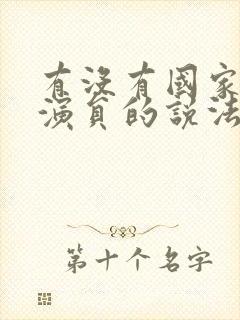 有没有國家
演員的說法
第十个名字